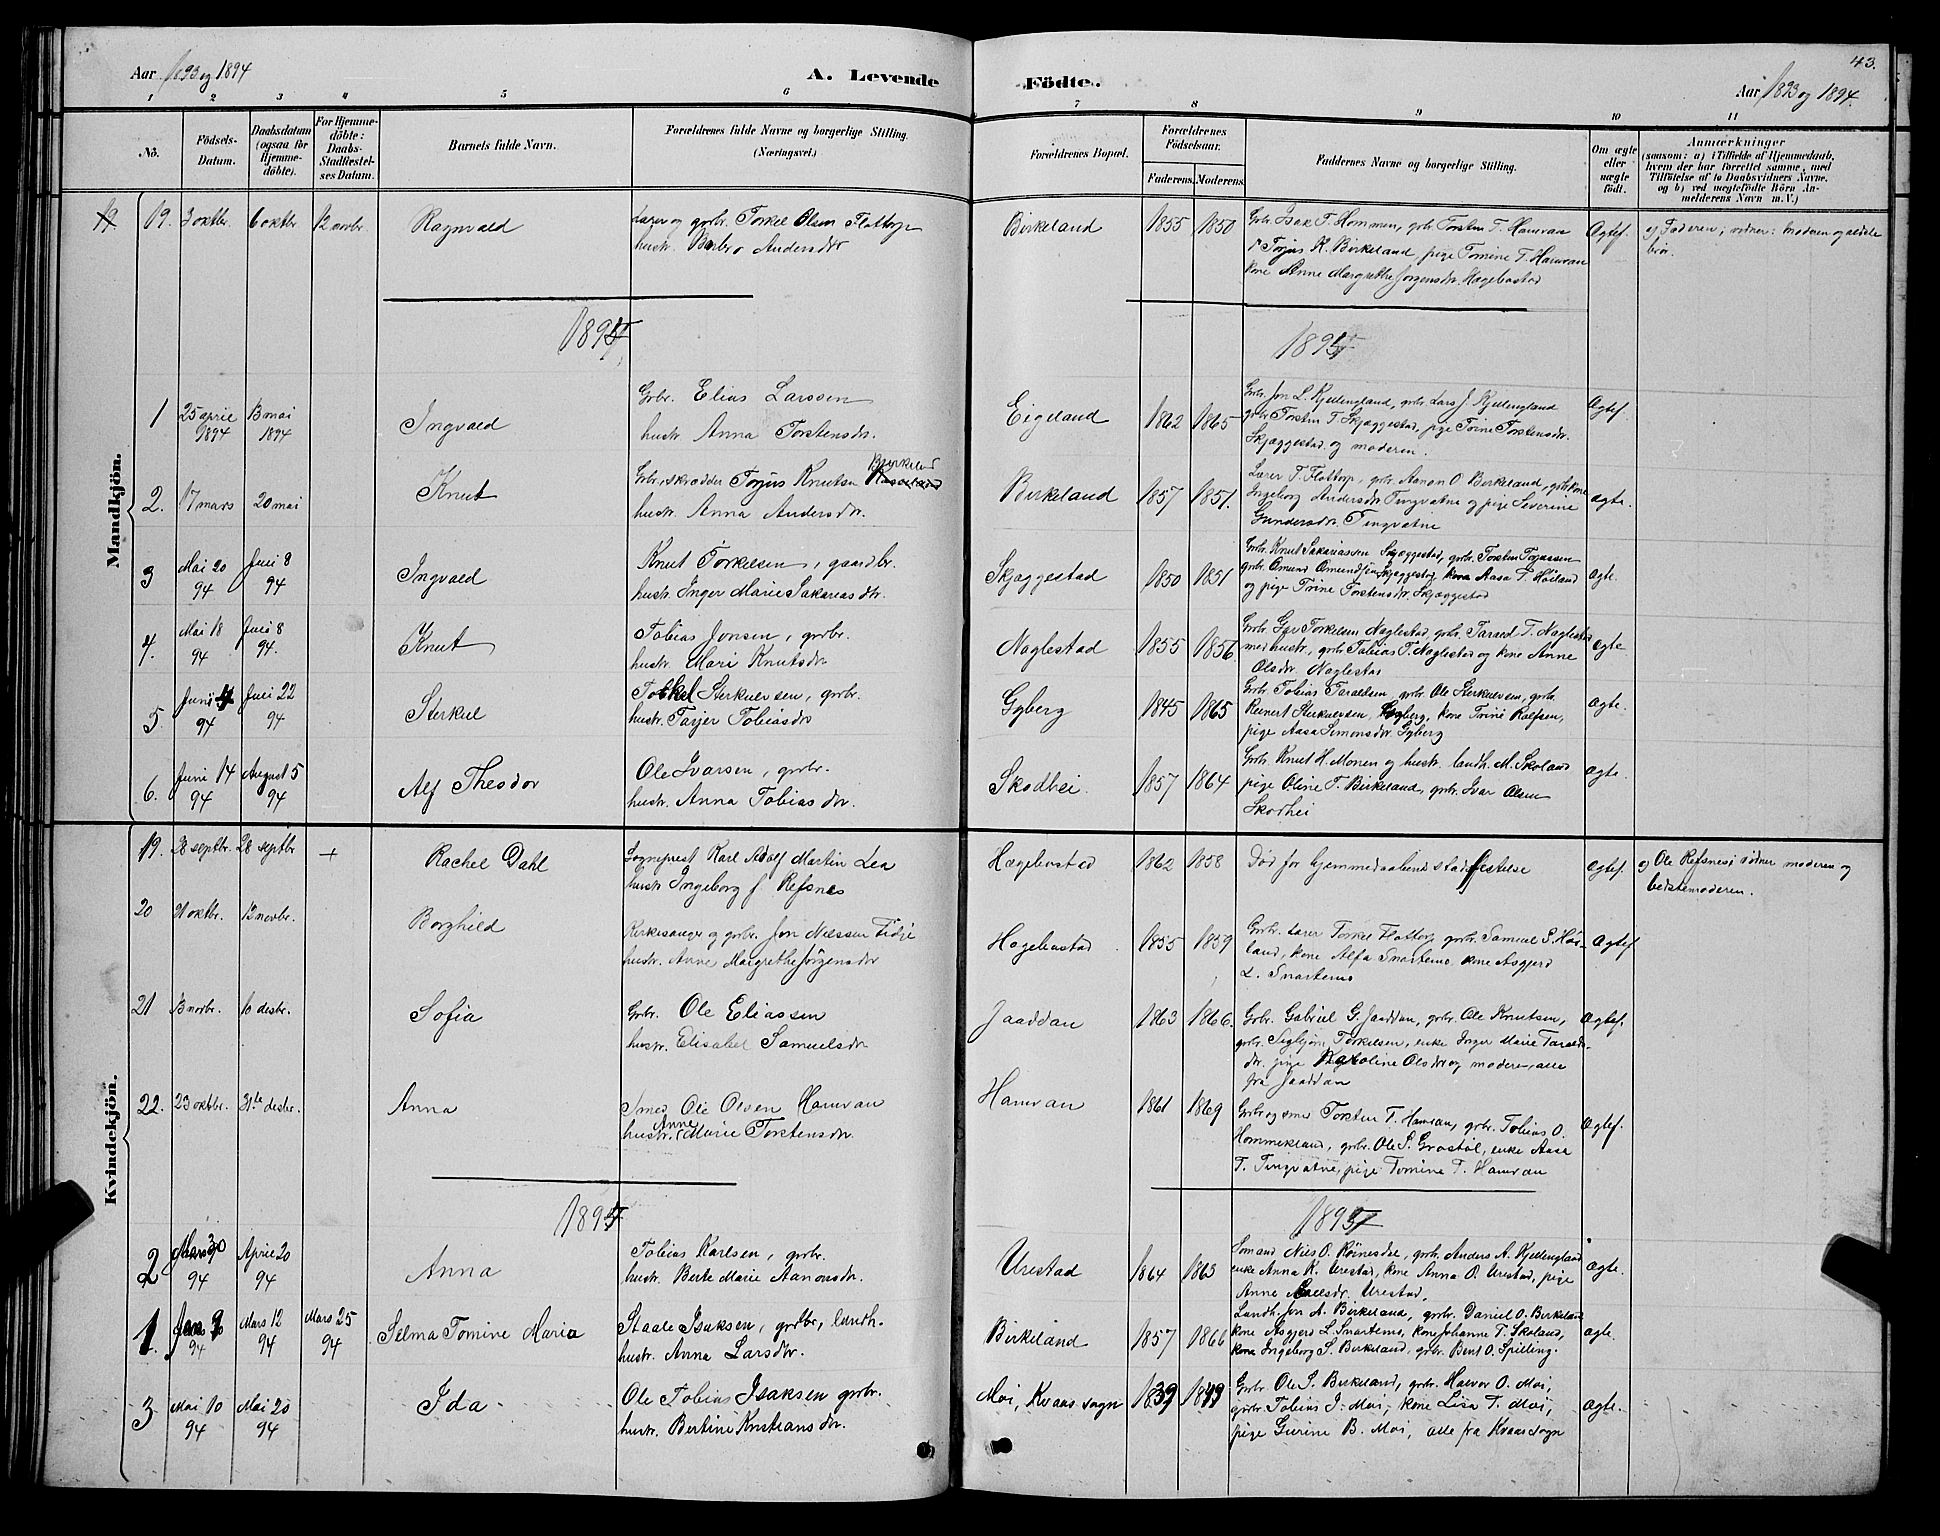 43.
Aar 1893 og 1894
A. Levende Födte.
Aar 1893 og 1894.
1 2 3 4 5 6 7 8 9 10 11
No.
Födsels-Datum.
Daabsdatum (ogsaa for Hjemme-döbte).
For Hjemme-döbte: Daabs-Stadfæstel-ses Datum.
Barnets fulde Navn.
Forældrenes fulde Navne og borgerlige Stilling. (Næringsvei.)
Forældrenes Bopæl.
Forældrenes Födselsaar.
Faderens. Moderens.
Faddernes Navne og borgerlige Stilling.
Om ægte eller uægte födt.
Anmærkninger
(saasom: a) i Tilfælde af Hjemmedaab, hvem der har forrettet samme, med Tilföielse af to Daabsvidners Navne, og b) ved uægtefödte Börn Anmelderens Navn m. V.)
Mandkjön.
19. 3 oktbr. 6 oktbr. 12 novbr. Ragnvald
Lærer og grbr. Torkel Olsen Flottorp
hustr. Berbro Andersdtr
Birkeland 1855 1850
Grbr. Isak T. Hommen, grbr. Torsten T. Hamran
Torjus K. Birkeland, pige Tomine T. Hamran
kone Anne Margrethe Jorgensdr. Hægebostad
Ægtef.
a) Faderen; vidner: moderen og ældste
bror.
1894
1894
1 25 april 1894 13 mai 1894 Ingvald
Grbr. Elias Larssen
hustr. Anna Torstensdr.
Eigeland 1862 1865
Grbr. Jon L. Kjellengland, grbr. Lars J. Kjellengland
grbr. Torsten T. Skjæggestad, pige Trine Torstensdr.
Skjæggestad og moderen.
Ægtef.
2. 17 mars 20 mai Knut
Grbr. skrædder Torjus Knutsen Birkeland
hustr. Anna Andersdr.
Birkeland 1857 1851.
Lærer T. Flottorp, grbr. Aanon O. Birkeland, grbr.kone
Ingeborg Andersdr. Tingvatne og pige Severine
Gundersdr. Tingvatne
Ægte.
3 Mai 20 94 Juni 8 94 Ingvald
Knut Torkelsen, gaardbr.
hustr. Inger Marie Sakariasdr.
Skjæggestad 1850 1851
Grbr. Knut Sakariassen Skjæggestad, grbr. Torsten Torjussen
grbr. Omund Omundsen Skjæggestad, kone Aasa T. Höiland
og pige Trine Torstensdr. Skjæggestad
Ægte.
4. Mai 18 94 Juni 8 94. Knut
Tobias Jonsen, grbr.
hustr. Mari Knutsdr
Naglestad 1855 1856
Grbr. Torkelsen Naglestad, grbr. Tarald T. Naglestad
med hustr., grbr. Tobias T. Naglestad og kone Anne
Olsdr Naglestad
Ægte
5. Juni 4 94 Juli 22 94 Sterkul
Torkel Sterkulvsen, grbr.
hustr. Tarjer Tobiasdr
Gyberg 1845 1865
Grbr. Tobias Taraldsen, grbr. Ole Sterkulvsen, grbr.
Reinert Sterkulvsen, Gyberg, kone Trine Rolfsen,
pige Aasa Simonsdr. Gyberg
Ægte.
6. Juni 14 94 August 5 94 Alf Theodor
Ole Ivarsen, grbr.
hustr. Anna Tobiasdr.
Skodhei. 1857 1864
Grbr. Knut H. Monen og hustr. landh. M. Skoland
pige Oline T. Birkeland, grbr. Ivar Olsen
Skodhei
Ægte.
Kvindekjön.
19. 28 septbr. 28 septbr + Rachel Dahl
Sogneprest Karl Adolf Martin Lea
hustr. Ingeborg f. Refsnes
Hægebostad 1862 1858
Död for hjemmedaabens stadfæstelse
Ægtef.
a) Ole Refsnes; vidner moderen og
bedstemoderen.
20 21 oktbr. 12 novbr. Borghild
Kirkesanger og grbr. Jon Nilssen Tidje
hustr. Anne Margrethe Jörgensdr
Hægebostad 1855 1859
Grbr. lærer Torkel Flottorp, grbr. Samuel S. Höi-
land, kone Alfa Snartemo, kone Asgjerd
L. Snartemo
Ægtef
21 13 novbr. 10 desbr. Sofia
Grbr. Ole Eliassen
hustr. Elisabet Samuelsdr
Jaaddan 1863 1866.
Grbr. Gabriel G. Jaaddan, grbr. Ole Knutsen,
grbr. Sigbjörn Torkelsen, enke Inger Marie Taralds-
dr. pige Karoline Olsdr og moderen, alle
fra Jaaddan
Ægtef.
22. 23 oktbr. 31te desbr. Anna
Smed Ole Olsen Hamran
hustr. Anne Marie Torstensdr.
Hamran 1861 1869
Grbr og smed Torsten T. Hamran, grbr. Tobias O.
Hommekland, grbr. Ole S. Grostöl, enke Aasa
T. Tingvatne, pige Tomine T. Hamran
Ægtef.
1894
1894
2 Mars 30 94 April 20 94 Anna
Tobias Karlsen, grbr.
hustr. Berte Marie Aanonsdr.
Urestad 1864 1863
Somand Nils O. Röinesdal, grbr. Anders A. Kjellengland
enke Anna K. Urestad, kone Anna O. Urestad, pige
Anne Urestad.
Ægte.
1. Jan 9 94 Mars 12 94 Mars 25 94 Selma Tomine Maria
Staale Isaksen, grbr., landh.
hustr. Anna Larsdr.
Birkeland 1857 1866
Landh. Jon A. Birkeland, grbr. Daniel O. Birkeland
kone Asgjerd L. Snartemo, kone Johanne T. Skoland,
kone Ingeborg S. Birkeland, grbr. Bent O. Spilling.
Ægte.
3 Mai 10 94 Mai 20 94 Ida
Ole Tobias Isaksen grbr.
hustr. Bertine Kristiansdr.
Moi, Kvaas sogn 1839 1849
Grbr. Ole S. Birkeland, grbr. Halvor O. Moi,
grbr. Tobias J. Moi, kone Lisa T. Moi,
pige Gurine B. Moi, alle fra Kvaas sogn
Ægte.